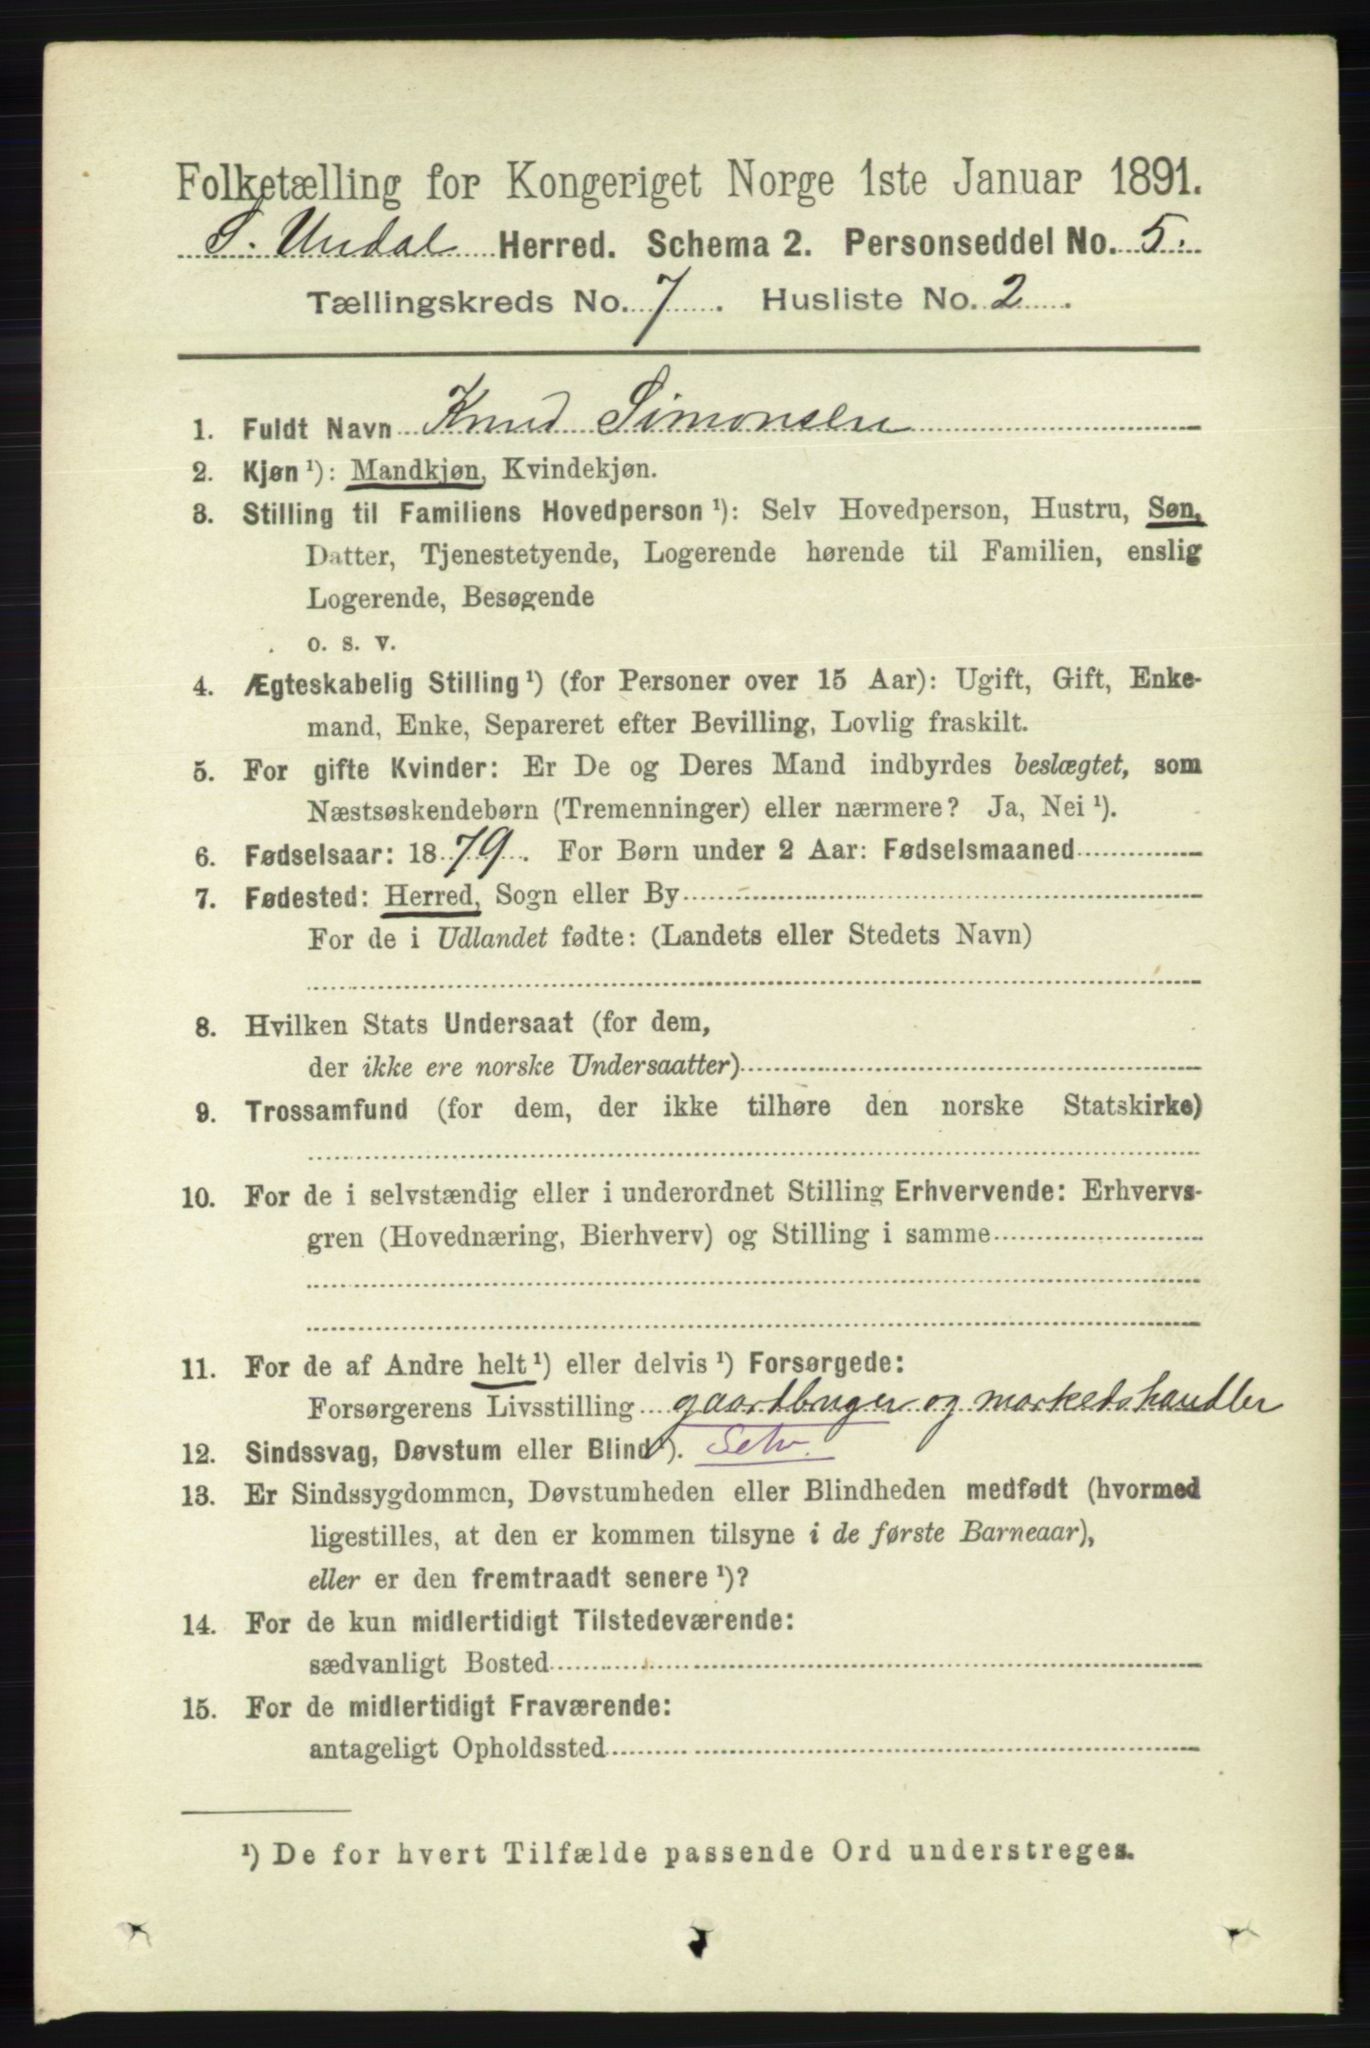 Folketælling for Kongeriget Norge 1ste Januar 1891.
S. Undal Herred. Schema 2. Personseddel No. 5.
Tællingskreds No. 7. Husliste No. 2.
1. Fuldt Navn Knud Simonsen
2. Kjøn ¹): Mandkjøn, Kvindekjøn.
3. Stilling til Familiens Hovedperson ¹): Selv Hovedperson, Hustru, Søn,
Datter, Tjenestetyende, Logerende hørende til Familien, enslig
Logerende, Besøgende
o. s. v.
4. Ægteskabelig Stilling ¹) (for Personer over 15 Aar): Ugift, Gift, Enke-
mand, Enke, Separeret efter Bevilling, Lovlig fraskilt.
5. For gifte Kvinder: Er De og Deres Mand indbyrdes beslægtet, som
Næstsøskendebørn (Tremenninger) eller nærmere? Ja, Nei ¹).
6. Fødselsaar: 1879. For Børn under 2 Aar: Fødselsmaaned
7. Fødested: Herred, Sogn eller By
For de i Udlandet fødte: (Landets eller Stedets Navn)
8. Hvilken Stats Undersaat (for dem,
der ikke ere norske Undersaatter)
9. Trossamfund (for dem, der ikke tilhøre den norske Statskirke)
10. For de i selvstændig eller i underordnet Stilling Erhvervende: Erhvervs-
gren (Hovednæring, Bierhverv) og Stilling i samme
11. For de af Andre helt ¹) eller delvis ¹) Forsørgede:
Forsørgerens Livsstilling gaardbruger og markedshandler
12. Sindssvag, Døvstum eller Blind ¹). Selv.
13. Er Sindssygdommen, Døvstumheden eller Blindheden medfødt (hvormed
ligestilles, at den er kommen tilsyne i de første Barneaar),
eller er den fremtraadt senere ¹)?
14. For de kun midlertidigt Tilstedeværende:
sædvanligt Bosted
15. For de midlertidigt Fraværende:
antageligt Opholdssted
¹) De for hvert Tilfælde passende Ord understreges.